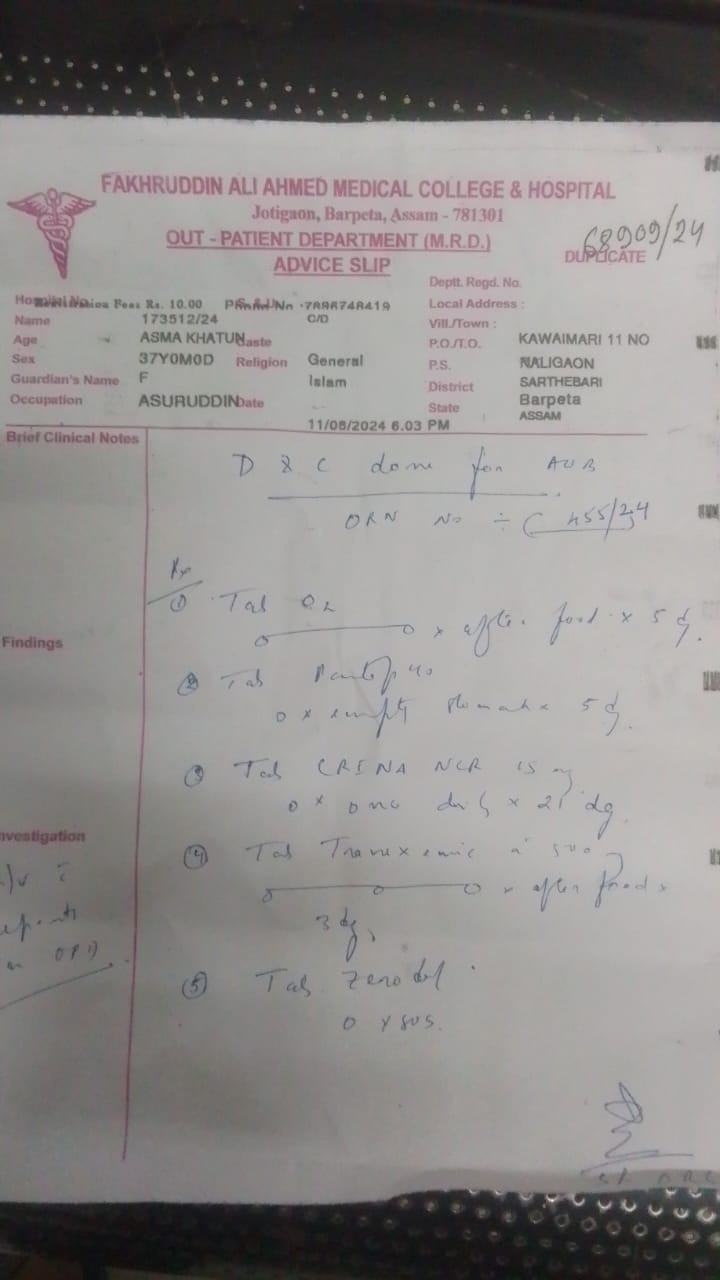 FAKHRUDDIN ALI AHMED MEDICAL COLLEGE & HOSPITAL
Jotigaon, Barpeta, Assam - 781301
OUT - PATIENT DEPARTMENT (M.R.D.)
68909/24
DUPLICATE
ADVICE SLIP
Deptt. Regd. No.
Hospital No. Registration Fees Rs. 10.00 Phone No :7896748419
Local Address :
Name 173512/24 C/D
Vill./Town :
Age ASMA KHATUN Caste
P.O./T.O. KAWAIMARI 11 NO
Sex 37Y0M0D Religion General
P.S. NALIGAON
Guardian's Name F Islam
District SARTHEBARI
Occupation ASURUDDIN Date
State Barpeta
ASSAM
11/06/2024 6.03 PM
Brief Clinical Notes
D & C done for AUB
ORN No ÷ C 455/24
Rx
① Tab O2
x after food x 5 d
Findings
② Tab Pantop 40
0 x empty stomach x 5 d
③ Tab CRINA NCR 15 mg
0 x once daily x 21 dy
Investigation
④ Tab Tranexemic 500
x after food x
3 dy
R/v c
reports
in OPD
⑤ Tab Zerodol
0 x SOS.